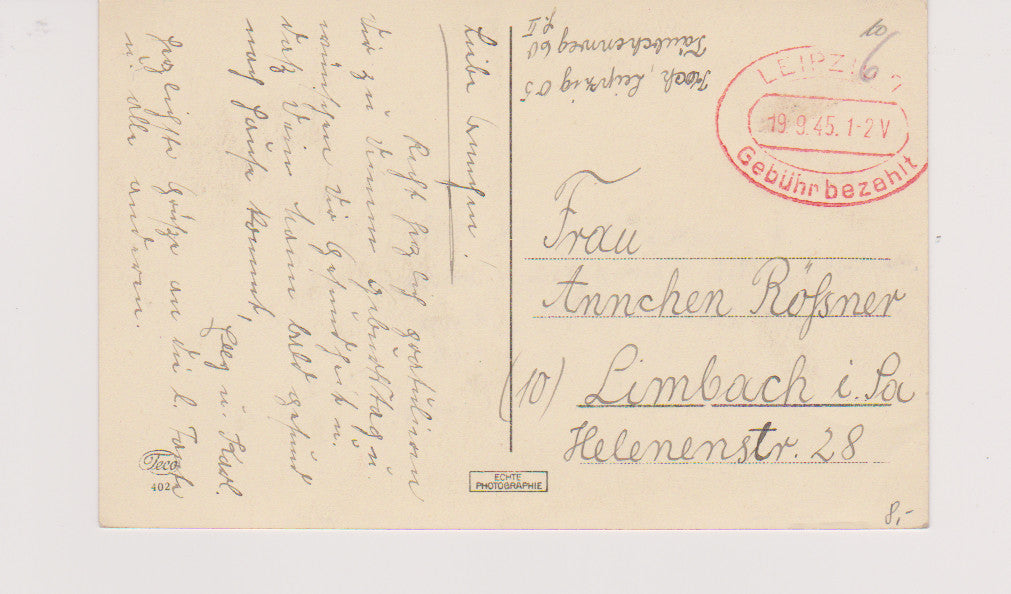 Liebe Annchen!
Recht herzlich gratulieren
wir zu Deinem Geburtstag u.
wünschen Dir Gesundheit u.
daß Dein Mann bald gesund
nach Hause kommt,
Herzlichste Grüße an die l. Tante
u. alle anderen.
u. Karl.
Teco
402
ECHTE
PHOTOGRAPHIE
Koch, Leipzig O5
Täubchenweg 60
g. II
10
6
LEIPZIG 1
19.9.45.1-2V
Gebühr bezahlt
Frau
Annchen Rößner
(10) Limbach i. Sa
Helenenstr. 28
8,-